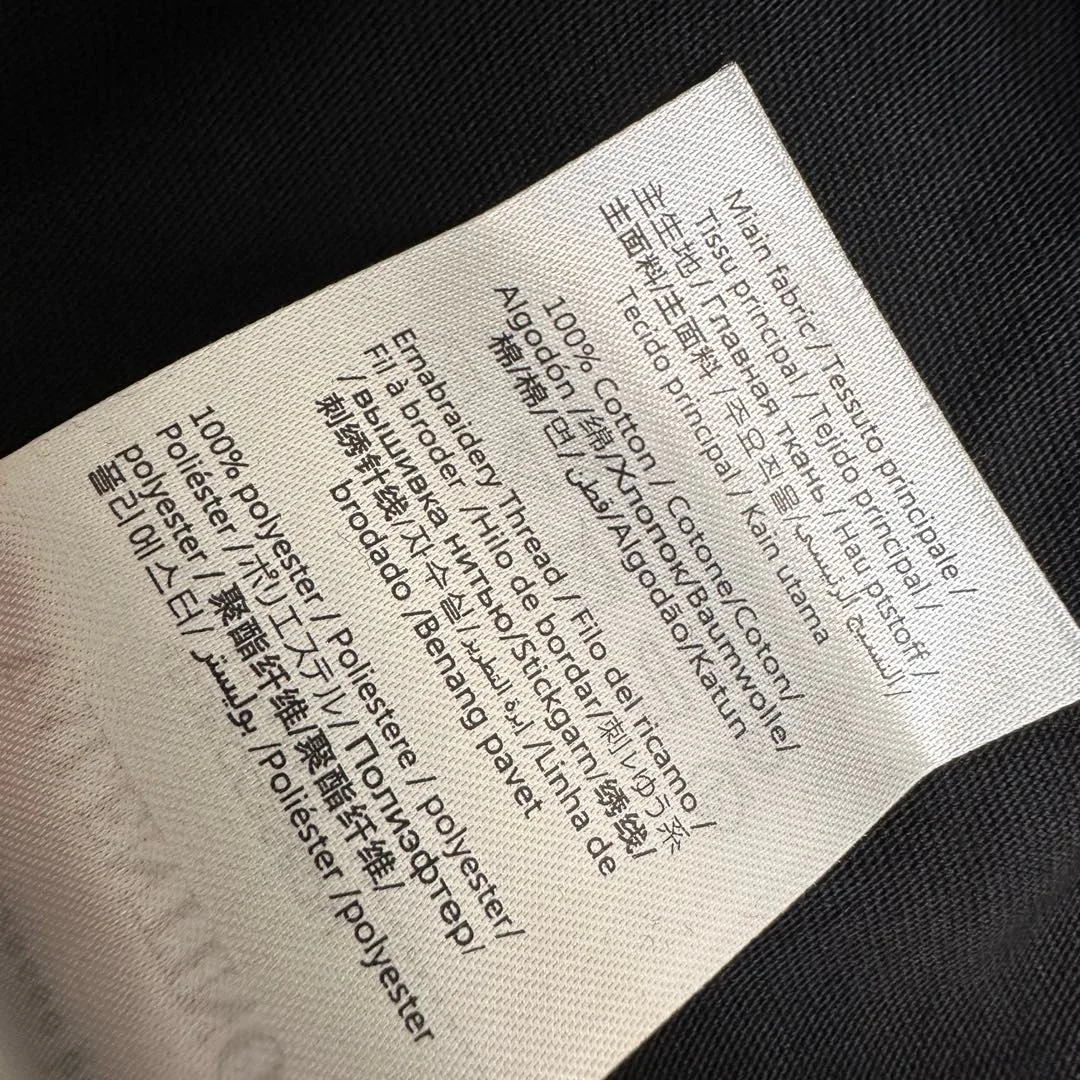 Miain fabric / Tessuto principale /
Tissu principal / Tejido principal /
主生地 / Главная ткань / Hau ptstoff /
主面料/主面料 / 주요 직물/النسيج الرئيسي /
Tecido principal / Kain utama
100% Cotton / Cotone/Coton/
Algodón /绵/Хлопок/Baumwolle/
棉/棉/면/قطن/Algodão/Katun
Ernabraidery Thread / Filo del ricamo /
Fil à broder /Hilo de bordar/刺しゆう糸
/Вышивка нитью/Stickgarn/绣线/
刺绣针线/자수실/ابرة التطريز /Linha de
brodado /Benang pavet
100% polyester / Poliestere / polyester/
Poliéster /ポリエステル/ Полиэфтер/
polyester / 聚酯纤维/聚酯纤维/
폴리에스터/ بوليستر /Poliéster /polyester